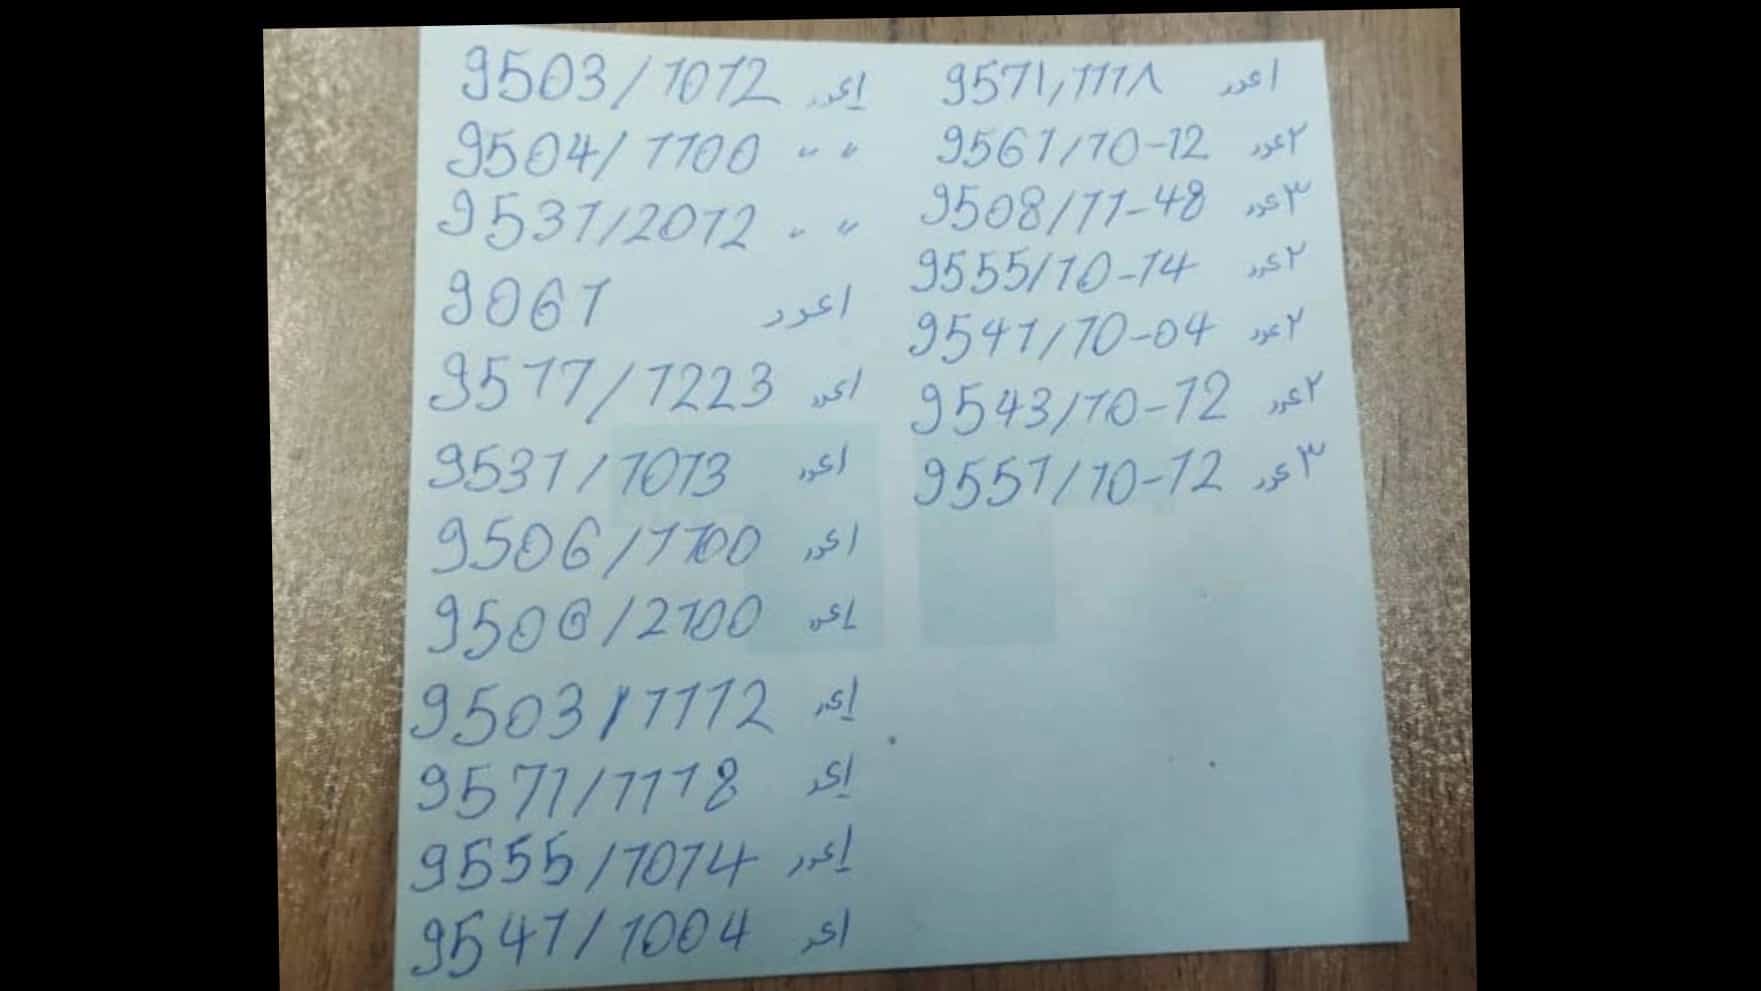 9503/1012 ۱عدد
9504/1100 " "
9531/2012 " "
9061 ۱عدد
9511/1223 ۱عدد
9531/1013 ۱عدد
9506/1100 ۱عدد
9506/2100 ۱عدد
9503/1112 ۱عدد
9571/1118 ۱عدد
9555/1014 ۱عدد
9541/1004 ۱عدد
9571/111۸ ۱عدد
9561/10-12 ۲عدد
9508/11-48 ۳عدد
9555/10-14 ۲عدد
9541/10-04 ۲عدد
9543/10-12 ۲عدد
9551/10-12 ۳عدد